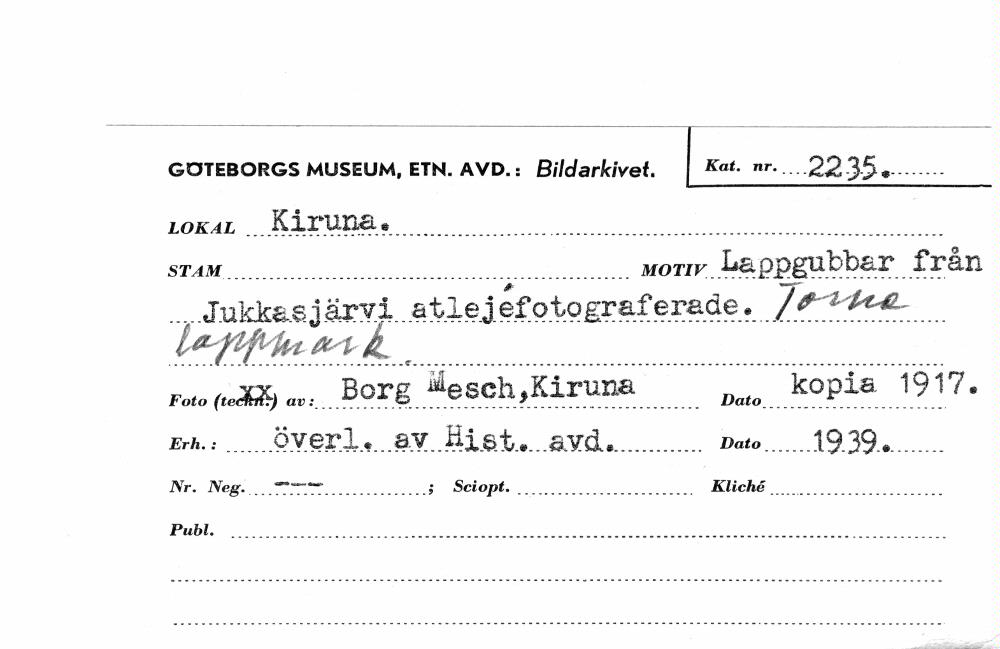 GÖTEBORGS MUSEUM, ETN. AVD.: Bildarkivet. Kat. nr. 2235.
LOKAL Kiruna.
STAM MOTIV Lappgubbar från
Jukkasjärvi atlejéfotograferade. Torne
lappmark.
Foto (teckn.) av: Borg Mesch,Kiruna Dato kopia 1917.
Erh.: överl. av Hist. avd. Dato 1939.
Nr. Neg. --- ; Sciopt. Kliché
Publ.